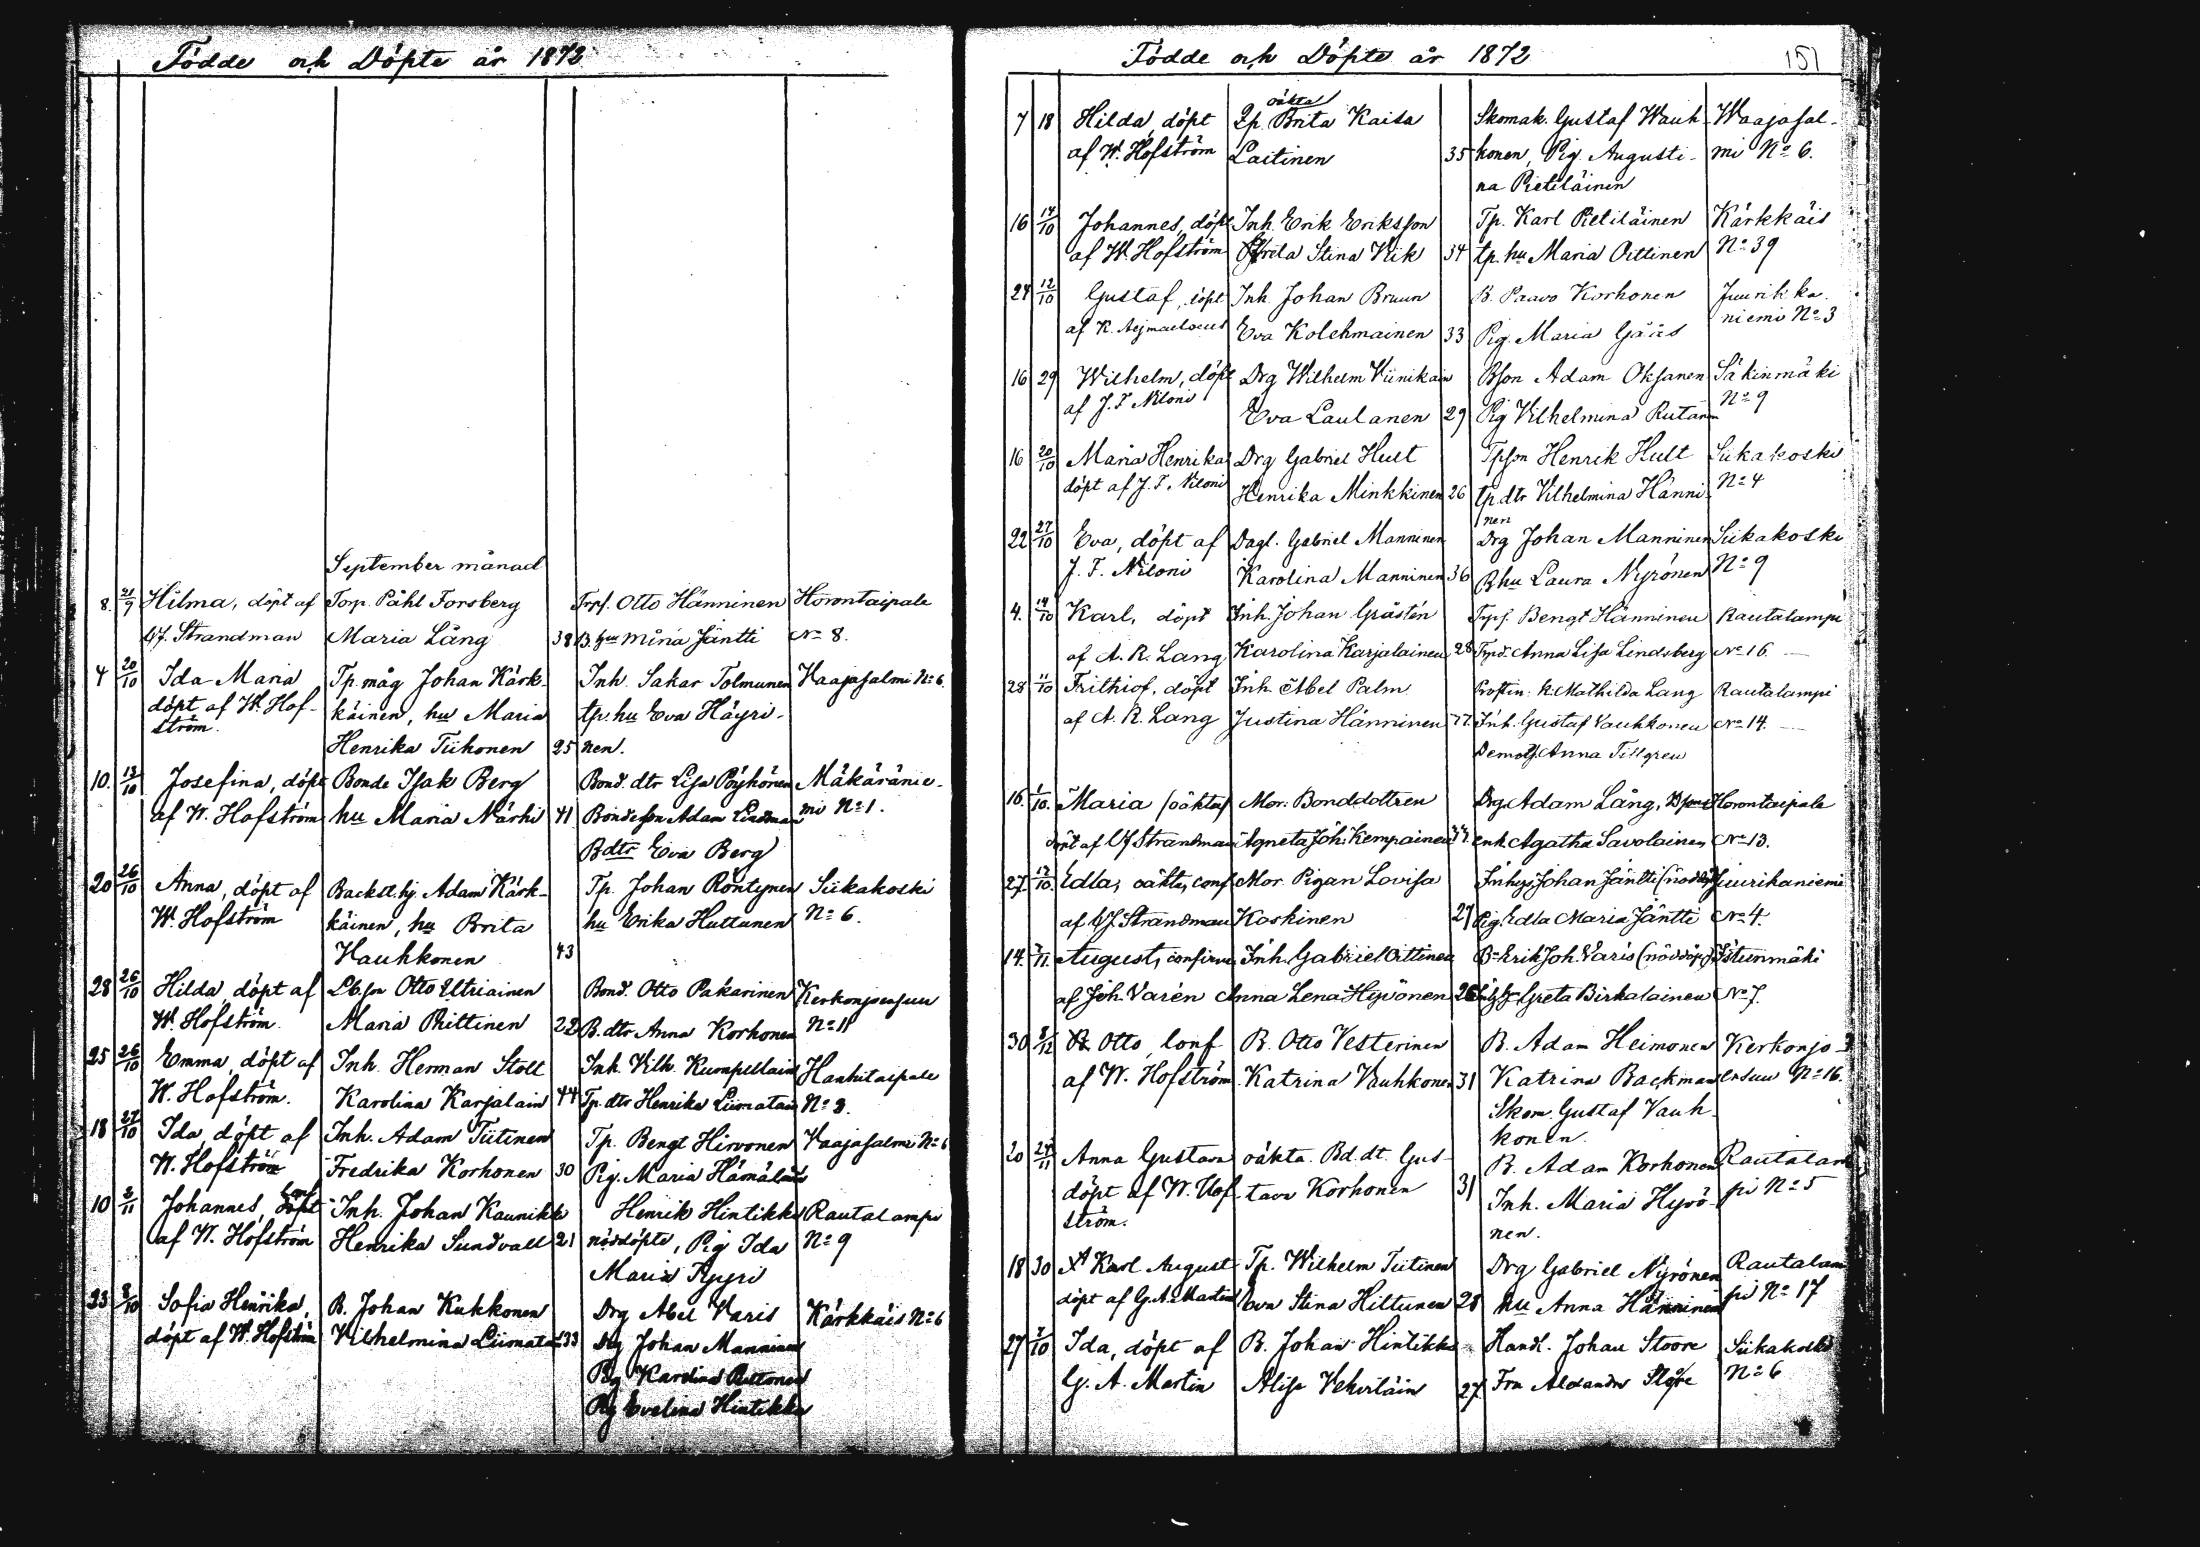 Födde och Döpte år 1872
September månad
8. 21/9 Hilma, döpt af Torp. Påhl Forsberg Torps. Otto Hänninen Horontaipale
Strandman Maria Lång 38 B. hu Mina Jäntti No 8.
4 20/10 Ida Maria Tp. måg Johan Kärk- Inh. Sakar Tolmunen Waajasalmi No 6.
döpt af W. Hof- käinen, hu Maria tp. hu Eva Häyri-
ström. Henrika Tiihonen 25 nen.
10. 13/10 Josefina, döpt Bonde Isak Berg Bond. dtr Lisa Pöyhönen Mäkäränie-
af W. Hofström hu Maria Närhi 41 Bondesson Adam Lindman mi No 1.
Bdtr Eva Berg
20 26/10 Anna, döpt af Backst. hj. Adam Kärk- Tp. Johan Röntynen Siikakoski
W. Hofström käinen, hu Brita hu Erika Huttunen No 6.
Hauhkonen 43
28 26/10 Hilda, döpt af Lb. son Otto Utriainen Bond. Otto Pakarinen Kerkonjoensuu
W. Hofström. Maria Riittinen 22 B. dtr Anna Korhonen No 11
25 26/10 Emma, döpt af Inh. Herman Stolt Inh. Vilh. Kumpulain Hanhitaipale
W. Hofström. Karolina Karjalain 44 Tp. dtr Henrika Liimatain No 3.
18 27/10 Ida, döpt af Inh. Adam Tiitinen Tp. Bengt Hirvonen Vaajasalmi No 6
W. Hofström Fredrika Korhonen 30 Pig. Maria Hämäläin
10 2/11 Johannes, conf döpt Inh. Johan Kaunikki Henrik Hintikka Rautalampi
af W. Hofström Henrika Sundvall 21 nöddöpte, Pig Ida No 9
Maria Ryyri
23 8/10 Sofia Henrika, B. Johan Kuhkonen Drg Abel Varis Kärkkäis No 6
döpt af W. Hofström Vilhelmina Liimatai 33 Drg Johan Manninen
Pig Karolina
Pig Evelina Hintikka
Födde och Döpte år 1872 151
7 18 Hilda, döpt oäkta Tp. Brita Kaisa Skomak. Gustaf Wauh- Waajasal-
af W. Hofström Laitinen 35 konen, Pig. Augusti- mi No 6.
na Pietiläinen
16 14/10 Johannes, döpt Inh. Erik Eriksson Tp. Karl Pietiläinen Kärkkäis
af W. Hofström Greta Stina Kiik 34 tp. hu Maria Oittinen No 39
24 12/10 Gustaf, döpt Inh. Johan Bruun B. Paavo Korhonen Juurikka-
af K. Aejmaelaeus Eva Kolehmainen 33 Pig. Maria Gåås niemi No 3
16 29 Wilhelm, döpt Drg Wilhelm Viinikain Bson Adam Oksanen Säkinmäki
af J. F. Niloni Eva Laulanen 29 Pig Vilhelmina Rutanen No 9
16 20/10 Maria Henrika Drg Gabriel Hult Tpson Henrik Hult Siikakoski
döpt af J. F. Niloni Henrika Minkkinen 26 tp. dtr Vilhelmina Hänni- No 4
nen
22 27/10 Eva, döpt af Dagl. Gabriel Manninen Drg Johan Manninen Siikakoski
J. F. Niloni Karolina Manninen 36 Bhu Laura Nyrönen No 9
4. 14/10 Karl, döpt Inh. Johan Gråstén Torps. Bengt Hänninen Rautalampi
af A. R. Lang Karolina Karjalainen 28 Torpd. Anna Lisa Lindsberg No 16.
28 11/10 Frithiof, döpt Inh. Abel Palm Prostin. Mathilda Lang Rautalampi
af A. R. Lang Justina Hänninen Inh. Gustaf Vauhkonen No 14.
Anna Tillgren
16. 1/10. Maria (oäkta) Mor: Bonddottren Drg. Adam Lång, Horontaipale
döpt af Strandman Agneta Joh. Kemppainen enk. Agatha Savolainen No 13.
27. 12/10. Edla, oäkta, conf Mor. Pigan Lovisa Inhys Johan Jäntti Juurikaniemi
af Strandman Koskinen 29 Pig. Edla Maria Jäntti No 4.
14. 7/11. August, confirm Inh. Gabriel Oittinen Erik Joh. Varis (nöddöp.) Istunmäki
af Joh. Varén Anna Lena Hyvönen 26 Greta Birkalainen No 7.
30 8/12 Otto, conf B. Otto Vesterinen B. Adam Heimonen Kerkonjo-
af W. Hofström Katrina Vauhkonen 31 Katrina Backman ensuu No 16.
Skom. Gustaf Vauh-
konen.
20 24/11 Anna Gustava oäkta. Bd. dt. Gus- B. Adam Korhonen Rautalam
döpt af W. Hof- tava Korhonen 31 Inh. Maria Hyvö- pi No 5
ström. nen.
18 30 Karl August Tp. Wilhelm Tiitinen Drg Gabriel Nyrönen Rautalam
döpt af G. A. Martin Eva Stina Hiltunen 28 hu Anna Hänninen pi No 17
27 7/10 Ida, döpt af B. Johan Hintikka Handl. Johan Stoore Siikakoski
G. A. Martin Alisa Vehviläin 27 Fru Alexandra Stoore No 6